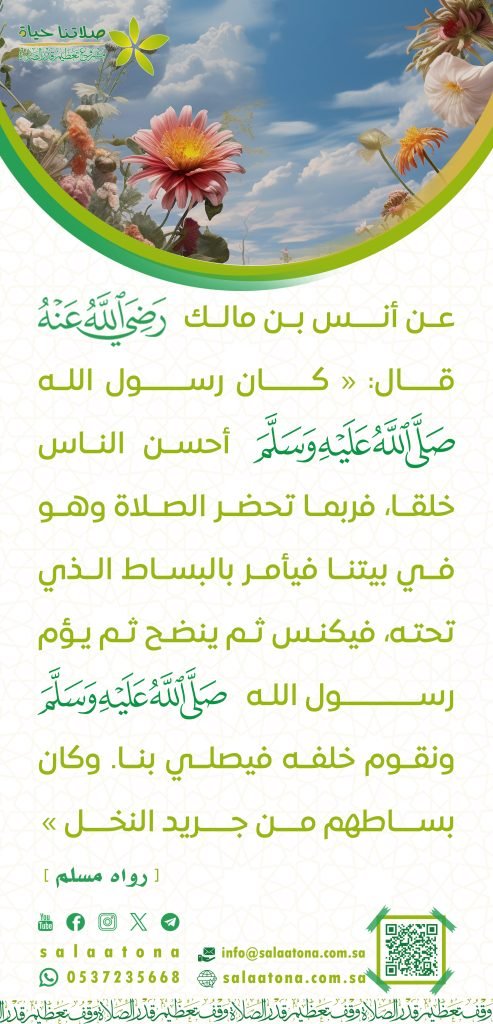 صلاتنا حياة
مشروع تعظيم قدر الصلاة
عن أنس بن مالك رَضِيَ اللَّهُ عَنْهُ
قال: « كان رسول الله
صَلَّى اللَّهُ عَلَيْهِ وَسَلَّمَ أحسن الناس
خلقا، فربما تحضر الصلاة وهو
في بيتنا فيأمر بالبساط الذي
تحته، فيكنس ثم ينضح ثم يؤم
رسول الله صَلَّى اللَّهُ عَلَيْهِ وَسَلَّمَ
ونقوم خلفه فيصلي بنا. وكان
بساطهم من جريد النخل »
[ رواه مسلم ]
You Tube
salaatona
info@salaatona.com.sa
0537235668
salaatona.com.sa
وقف تعظيم قدر الصلاة وقف تعظيم قدر الصلاة وقف تعظيم قدر الصلاة وقف تعظيم قدر